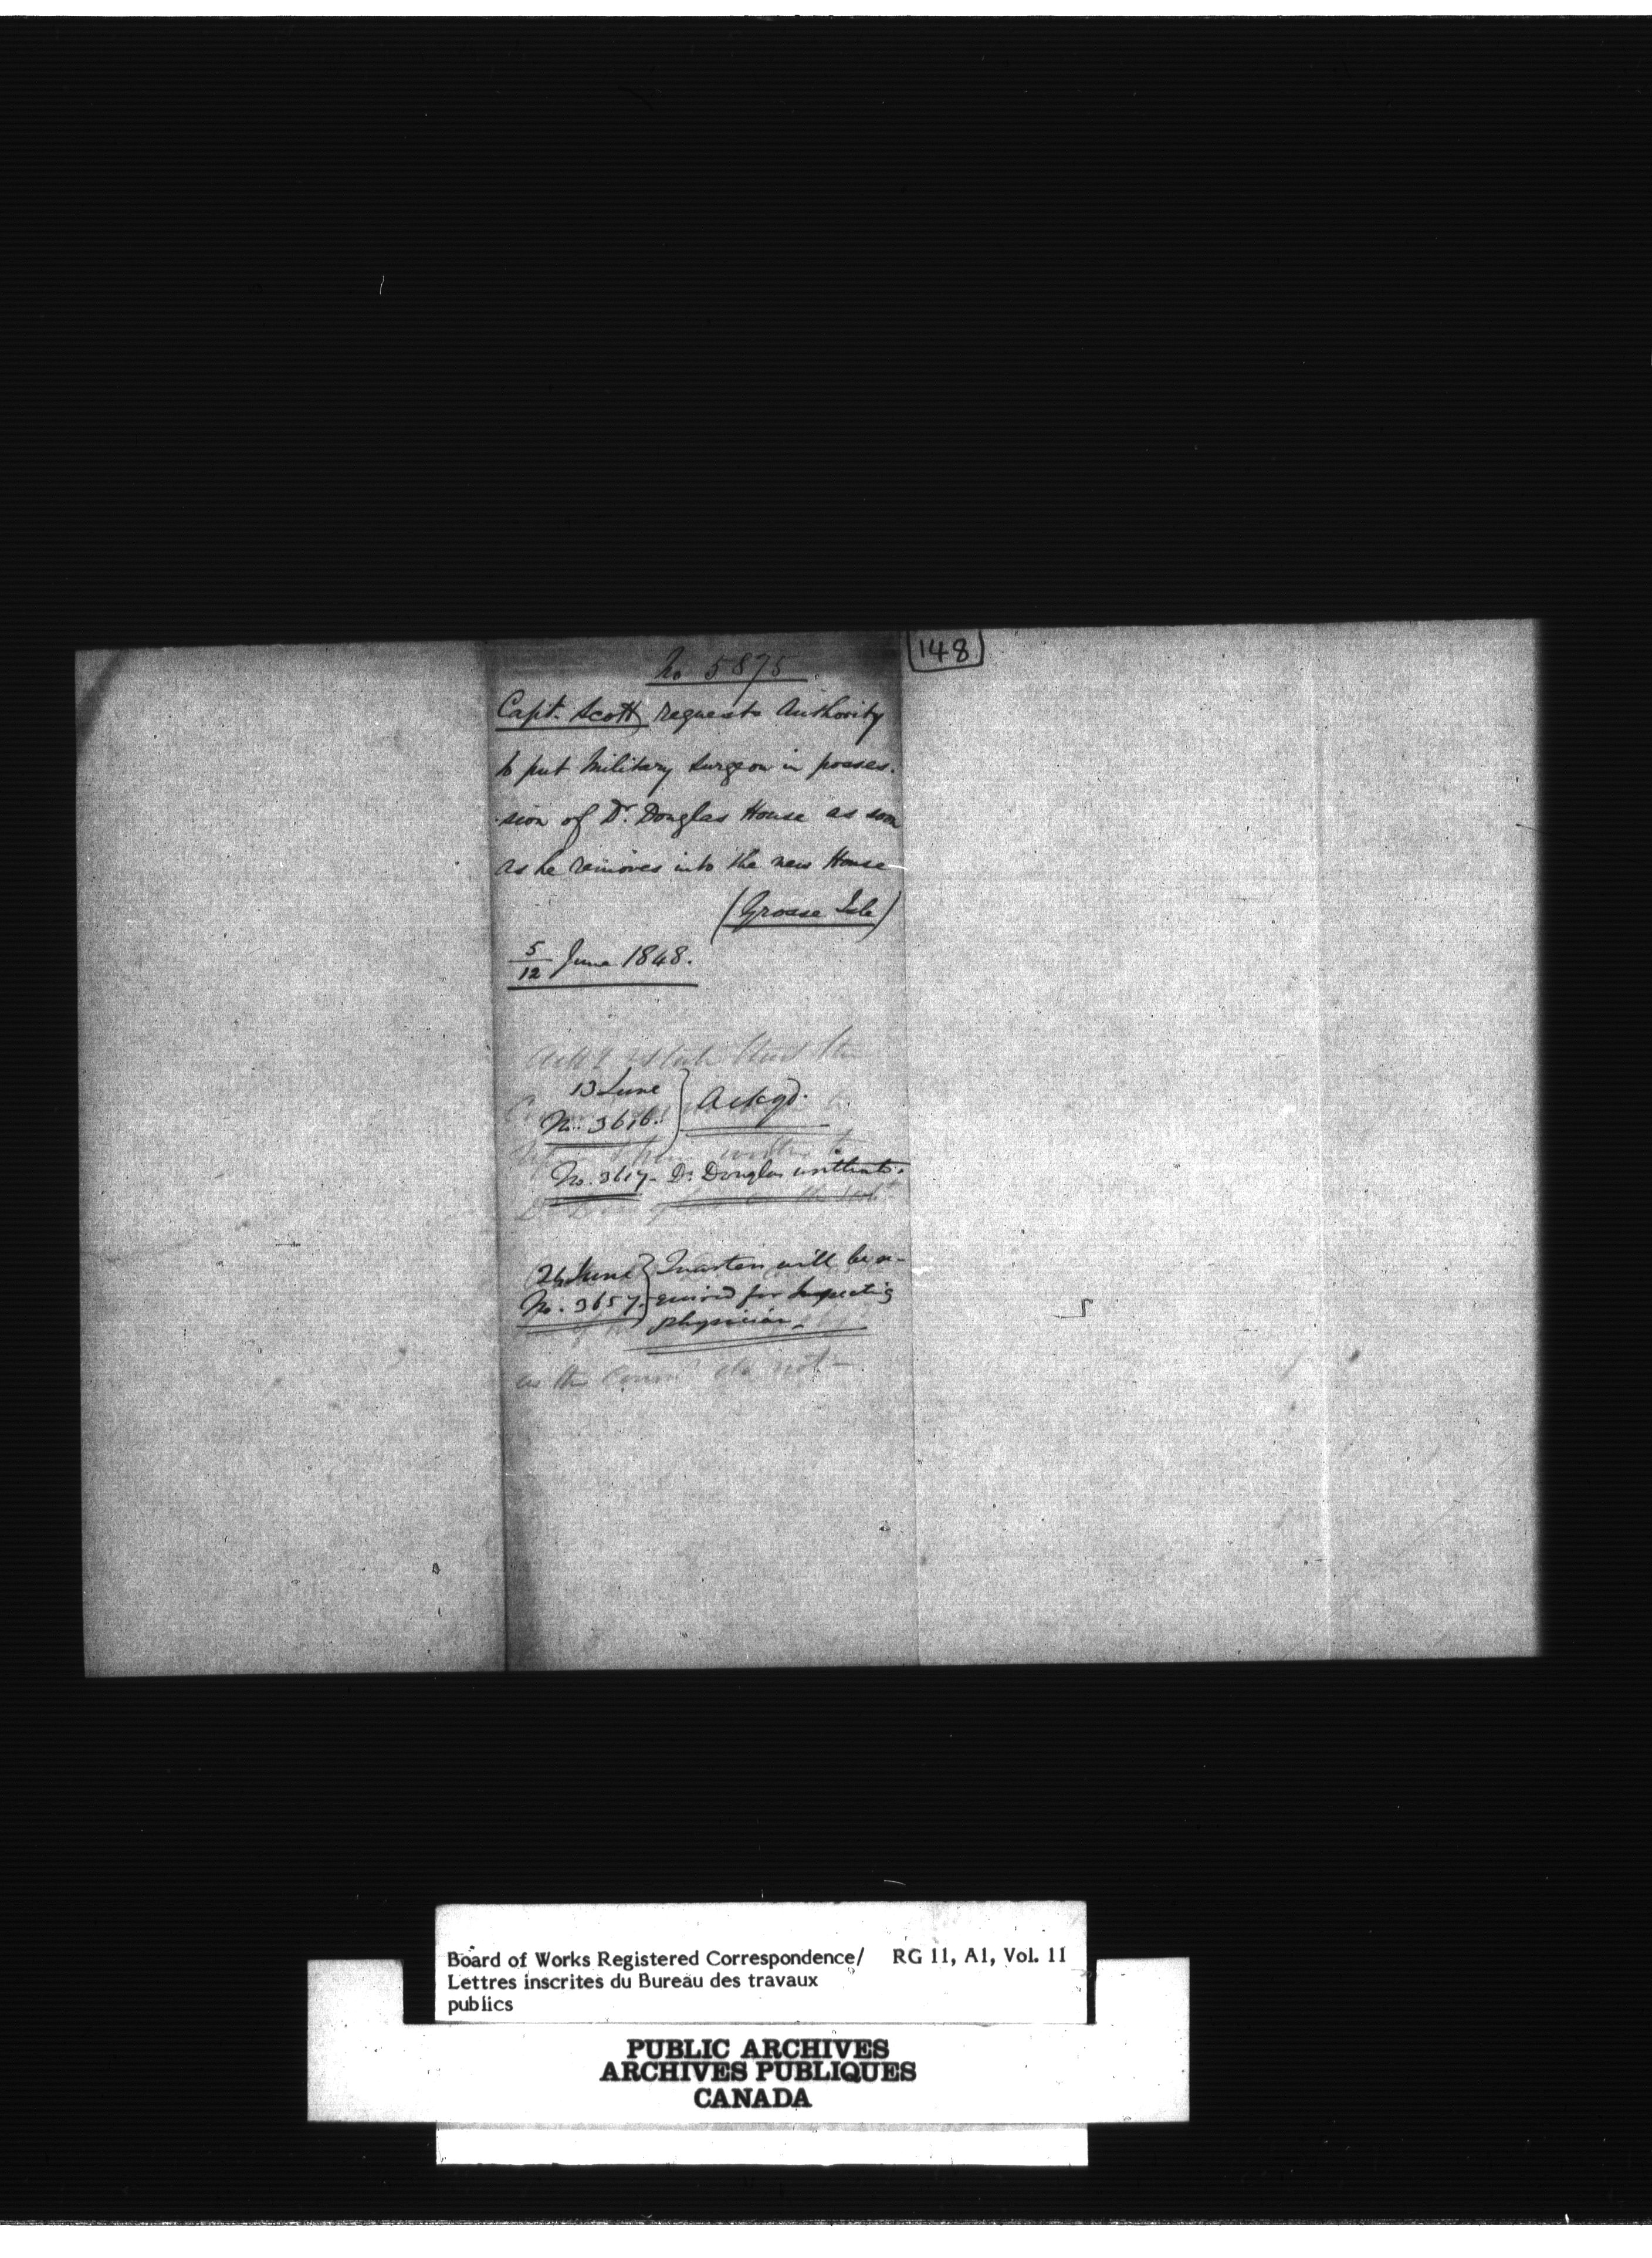 148
No 5875.
Capt. Scott requests Authority
to put Military Surgeon in posses-
-sion of Dr. Douglas House as soon
as he removes into the new House
(Grosse Isle)
5/12 June 1848.
13 June
No. 3616. } Ackgd.
No. 3617 - Dr. Douglas written to.
26 June } Quarters will be re-
No. 3657. } quired for Inspecting
physician.
as the Comrs do not -
Board of Works Registered Correspondence/ RG 11, A1, Vol. 11
Lettres inscrites du Bureau des travaux
publics
PUBLIC ARCHIVES
ARCHIVES PUBLIQUES
CANADA